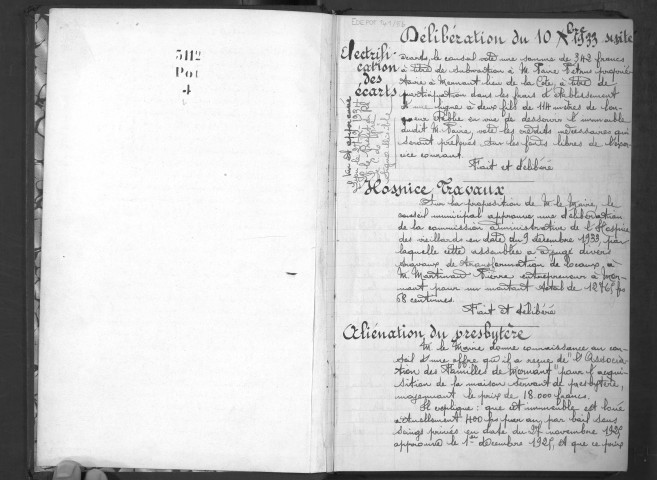 3112
Pot
4
EDEPOT 341/86
Délibération du 10 Xbre 1933 suite
Electrifi-
cation
des
écarts
écarts, le conseil vote une somme de 342 francs
à titre de subvention à M. Faure proprié-
taire à Mornant lieu de la Côte, à titre de
participation dans les frais d'établissement
d'une ligne à deux fils de 114 mètres de lon-
gueur établie en vue de desservir l'immeuble
dudit M. Faure, vote les crédits nécessaires qui
seront prélevés sur les fonds libres de l'exer-
cice courant.
Fait et délibéré
Vu et approuvé
Hospice, Travaux
Sur la proposition de M. le Maire, le
conseil municipal approuve une délibération
de la commission administrative de l'Hospice
des vieillards en date du 9 décembre 1933 par
laquelle cette assemblée a divers
travaux de transformation de locaux, à
M. Martinaud Pierre entrepreneur à Mor-
nant pour un montant total de 1276 frs
68 centimes.
Fait et délibéré
Aliénation du presbytère
M. le Maire donne connaissance au con-
seil d'une offre qu'il a reçue de "l'Associa-
tion des Familles de Mornant" pour l'acqui-
sition de la maison servant de presbytère,
moyennant le prix de 18.000 francs.
Il explique que cet immeuble est loué
actuellement 400 frs par an, par bail sous
seings privés en date du 27 novembre 1925
approuvé le 1er décembre 1925, et que ce prix